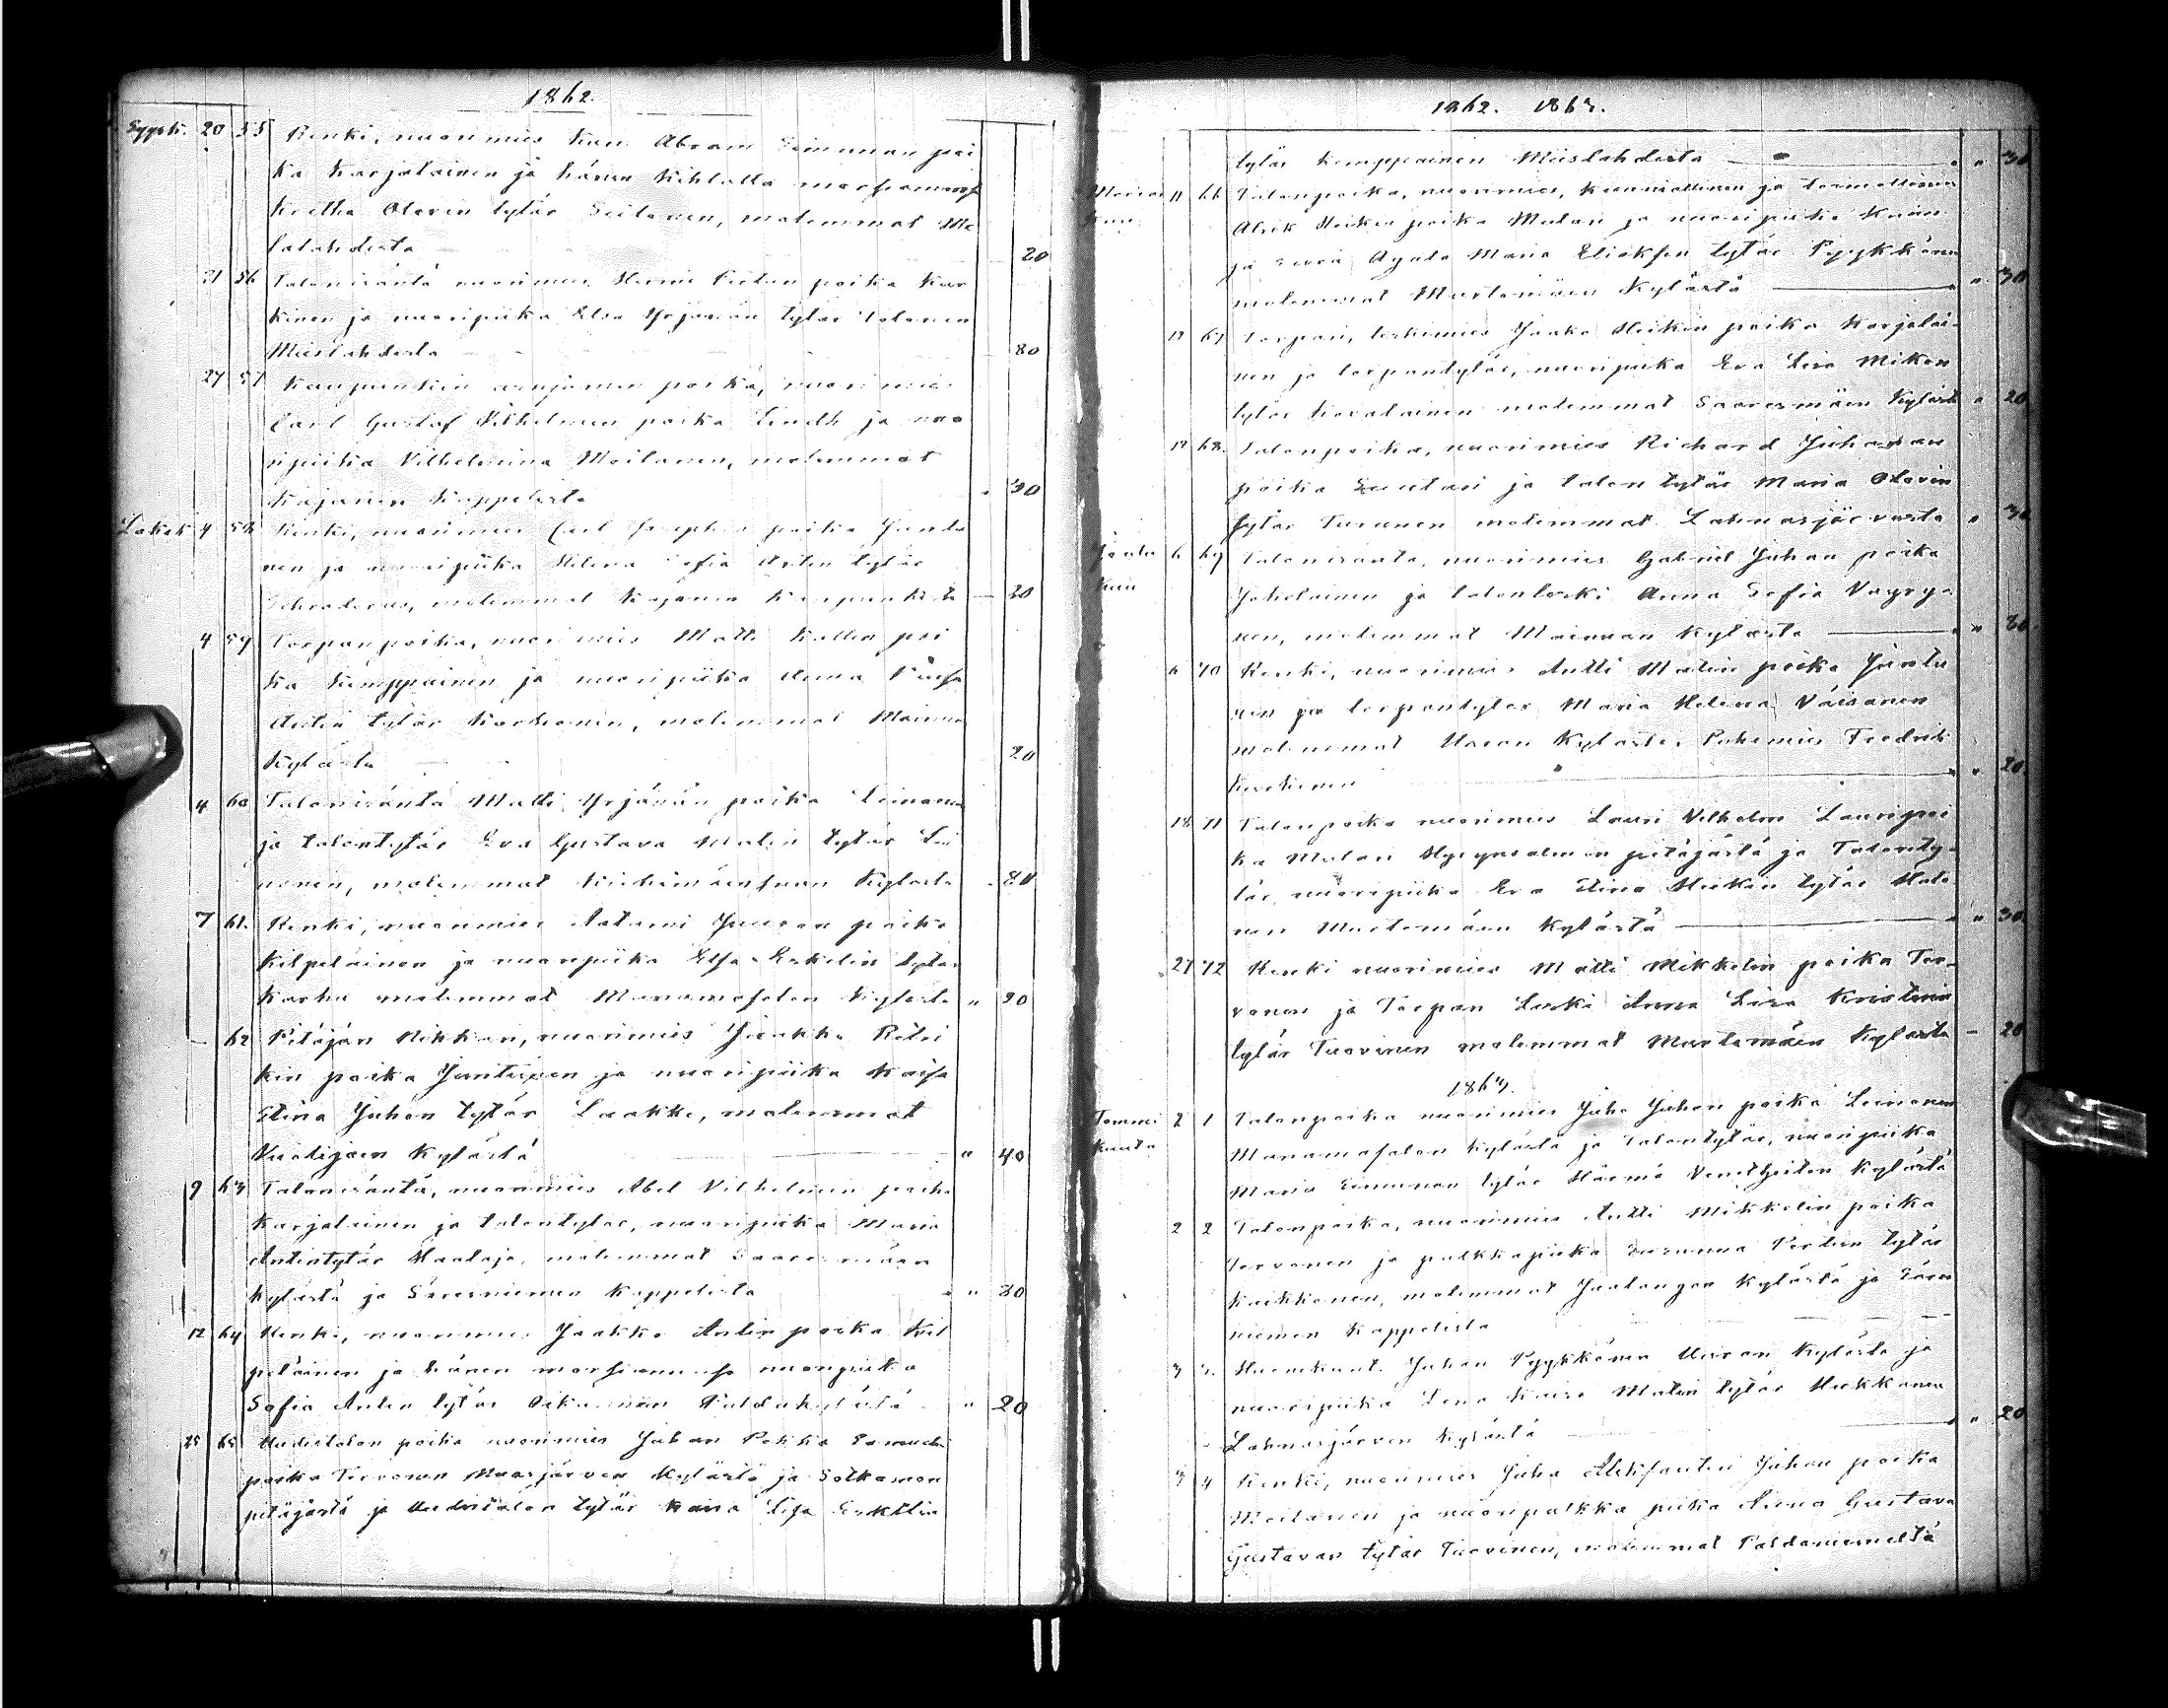 1862.
Syysk. 20 55 Renki, nuorimies Kun. Abram Simunan poi
ka Karjalainen ja hänen kihlattu morsiamensa
Kretha Olavin tytär Seilonen, molemmat Me
lalahdesta 20
21 56 Talonisäntä nuorimies Hermi Pertun poika Kar
kinen ja nuoripiika Elsa Yrjänän tytär Tolonen
Mieslahdesta 80
27 57 Kaupunkin asujamen poika, nuorimies
Carl Gustaf Vilhelmin poika Lindh ja nuo
ripiika Vilhelmina Moilanen, molemmat
Kajanin Kappelista 30
Lokak 4 58 Renki, nuorimies Carl Josephin poika Juntu
nen ja nuoripiika Helena Sofia Antin tytär
Schroderus, molemmat Kajanin Kaupunkista 20
4 59 Torpanpoika, nuorimies Matti Kallen poi
ka Kemppainen ja nuoripiika Anna Kaisa
Antin tytär Karhonen, molemmat Mainua
Kylästä 20
4 60 Talonisäntä Matti Yrjänän poika Leinonen
ja talontytär Eva Gustava Matin tytär Lei
nonen, molemmat Kylästä 80
7 61. Renki, nuorimies Aatami Juuson poika
Kilpeläinen ja nuoripiika Elsa Erkelin tytär
Karhu molemmat Manamasalon Kylästä " 20
62 Pitäjän Nikkari, nuorimies Jaakko Retri
kin poika Juntunen ja nuoripiika Kaisa
Stina Juhon tytär Laakko, molemmat
Vuolijoen Kylästä " 40
9 63 Talonisäntä, nuorimies Abel Vilhelmin poika
Karjalainen ja talontytär, nuoripiika Maria
Antintytär Haataja, molemmat Saaresmäen
Kylästä ja Säresniemen Kappelista " 80
12 64 Renki, nuorimies Jaakko Antin poika Kil
peläinen ja hänen morsiamensa nuoripiika
Sofia Antin tytär Oikarinen Paldakylästä " 20
25 65 Uudistalon poika nuorimies Juhan Pekka
poika Tervonen Kylästä ja Sotkamon
pitäjästä ja Uudistalon tytär Kaisa Lisa Erkelin
1862. 1863.
tytär Kemppainen Mieslahdesta " 30
Marras 11 66 Talonpoika, nuorimies, kunniallinen ja
kuu Alrik Heikin poika Mulari ja nuoripiika kunn.
ja Agata Maria Eliaksen tytär Pyykkönen
molemmat Murtomäen Kylästä " 30
67 Torpari, leskimies Jaako Heikin poika Karjalai-
nen ja torpantytär, nuoripiika Eva Lisa Mikon
tytär Kovalainen molemmat Saaresmäen Kylästä " 20
68. Talonpoika, nuorimies Richard Juhanan
poika Suutari ja talon tytär Maria Olavin
tytär Turunen molemmat Lahnasjärvestä " 30
Joulu 6 69 Talonisäntä, nuorimies Gabriel Juhan poika
kuu ja talonleski Anna Sofia Väyry-
nen, molemmat Mainuan Kylästä " 80
6 70 Renki, nuorimies Antti Matin poika Juntu
nen ja torpantytär Maria Helena Väisänen
molemmat Kylästä. Puhemies Fredrik
" 20
18 71 Talonpoika nuorimies Lauri Vilhelm Lauripoi
ka Mulari Hyrynsalmen pitäjästä ja Talonty-
tär, nuoripiika Eva Stina Heikin tytär
nen Murtomäen Kylästä " 30
27 72 Renki nuorimies Matti Mikkelin poika Ter-
vonen ja Torpan Leski Anna Lisa Kristerin
tytär Tuovinen molemmat Murtomäen Kylästä 20
1863.
Tammi 2 1 Talonpoika nuorimies Juho Juhon poika Leinonen
kuuta Manamasalon Kylästä ja Talontytär, nuoripiika
Maria Simunan tytär Härmä Veneheiton Kylästä
2 2 Talonpoika, nuorimies Antti Mikkelin poika
Tervonen ja palkkapiika Susanna Pertun tytär
Kaikkonen, molemmat Jaalangan Kylästä ja Säres
niemen Kappelista
3 3. Juhan Pyykkönen Kylästä ja
nuoripiika Lena Kaisa Matin tytär Heikkinen
Lahnasjärven Kylästä " 20
3 4 Renki, nuorimies Juho Aleksanteri Juhan poika
Moilanen ja nuoripalkka piika Anna Gustava
Gustavan tytär Tuovinen, molemmat Paldaniemeltä